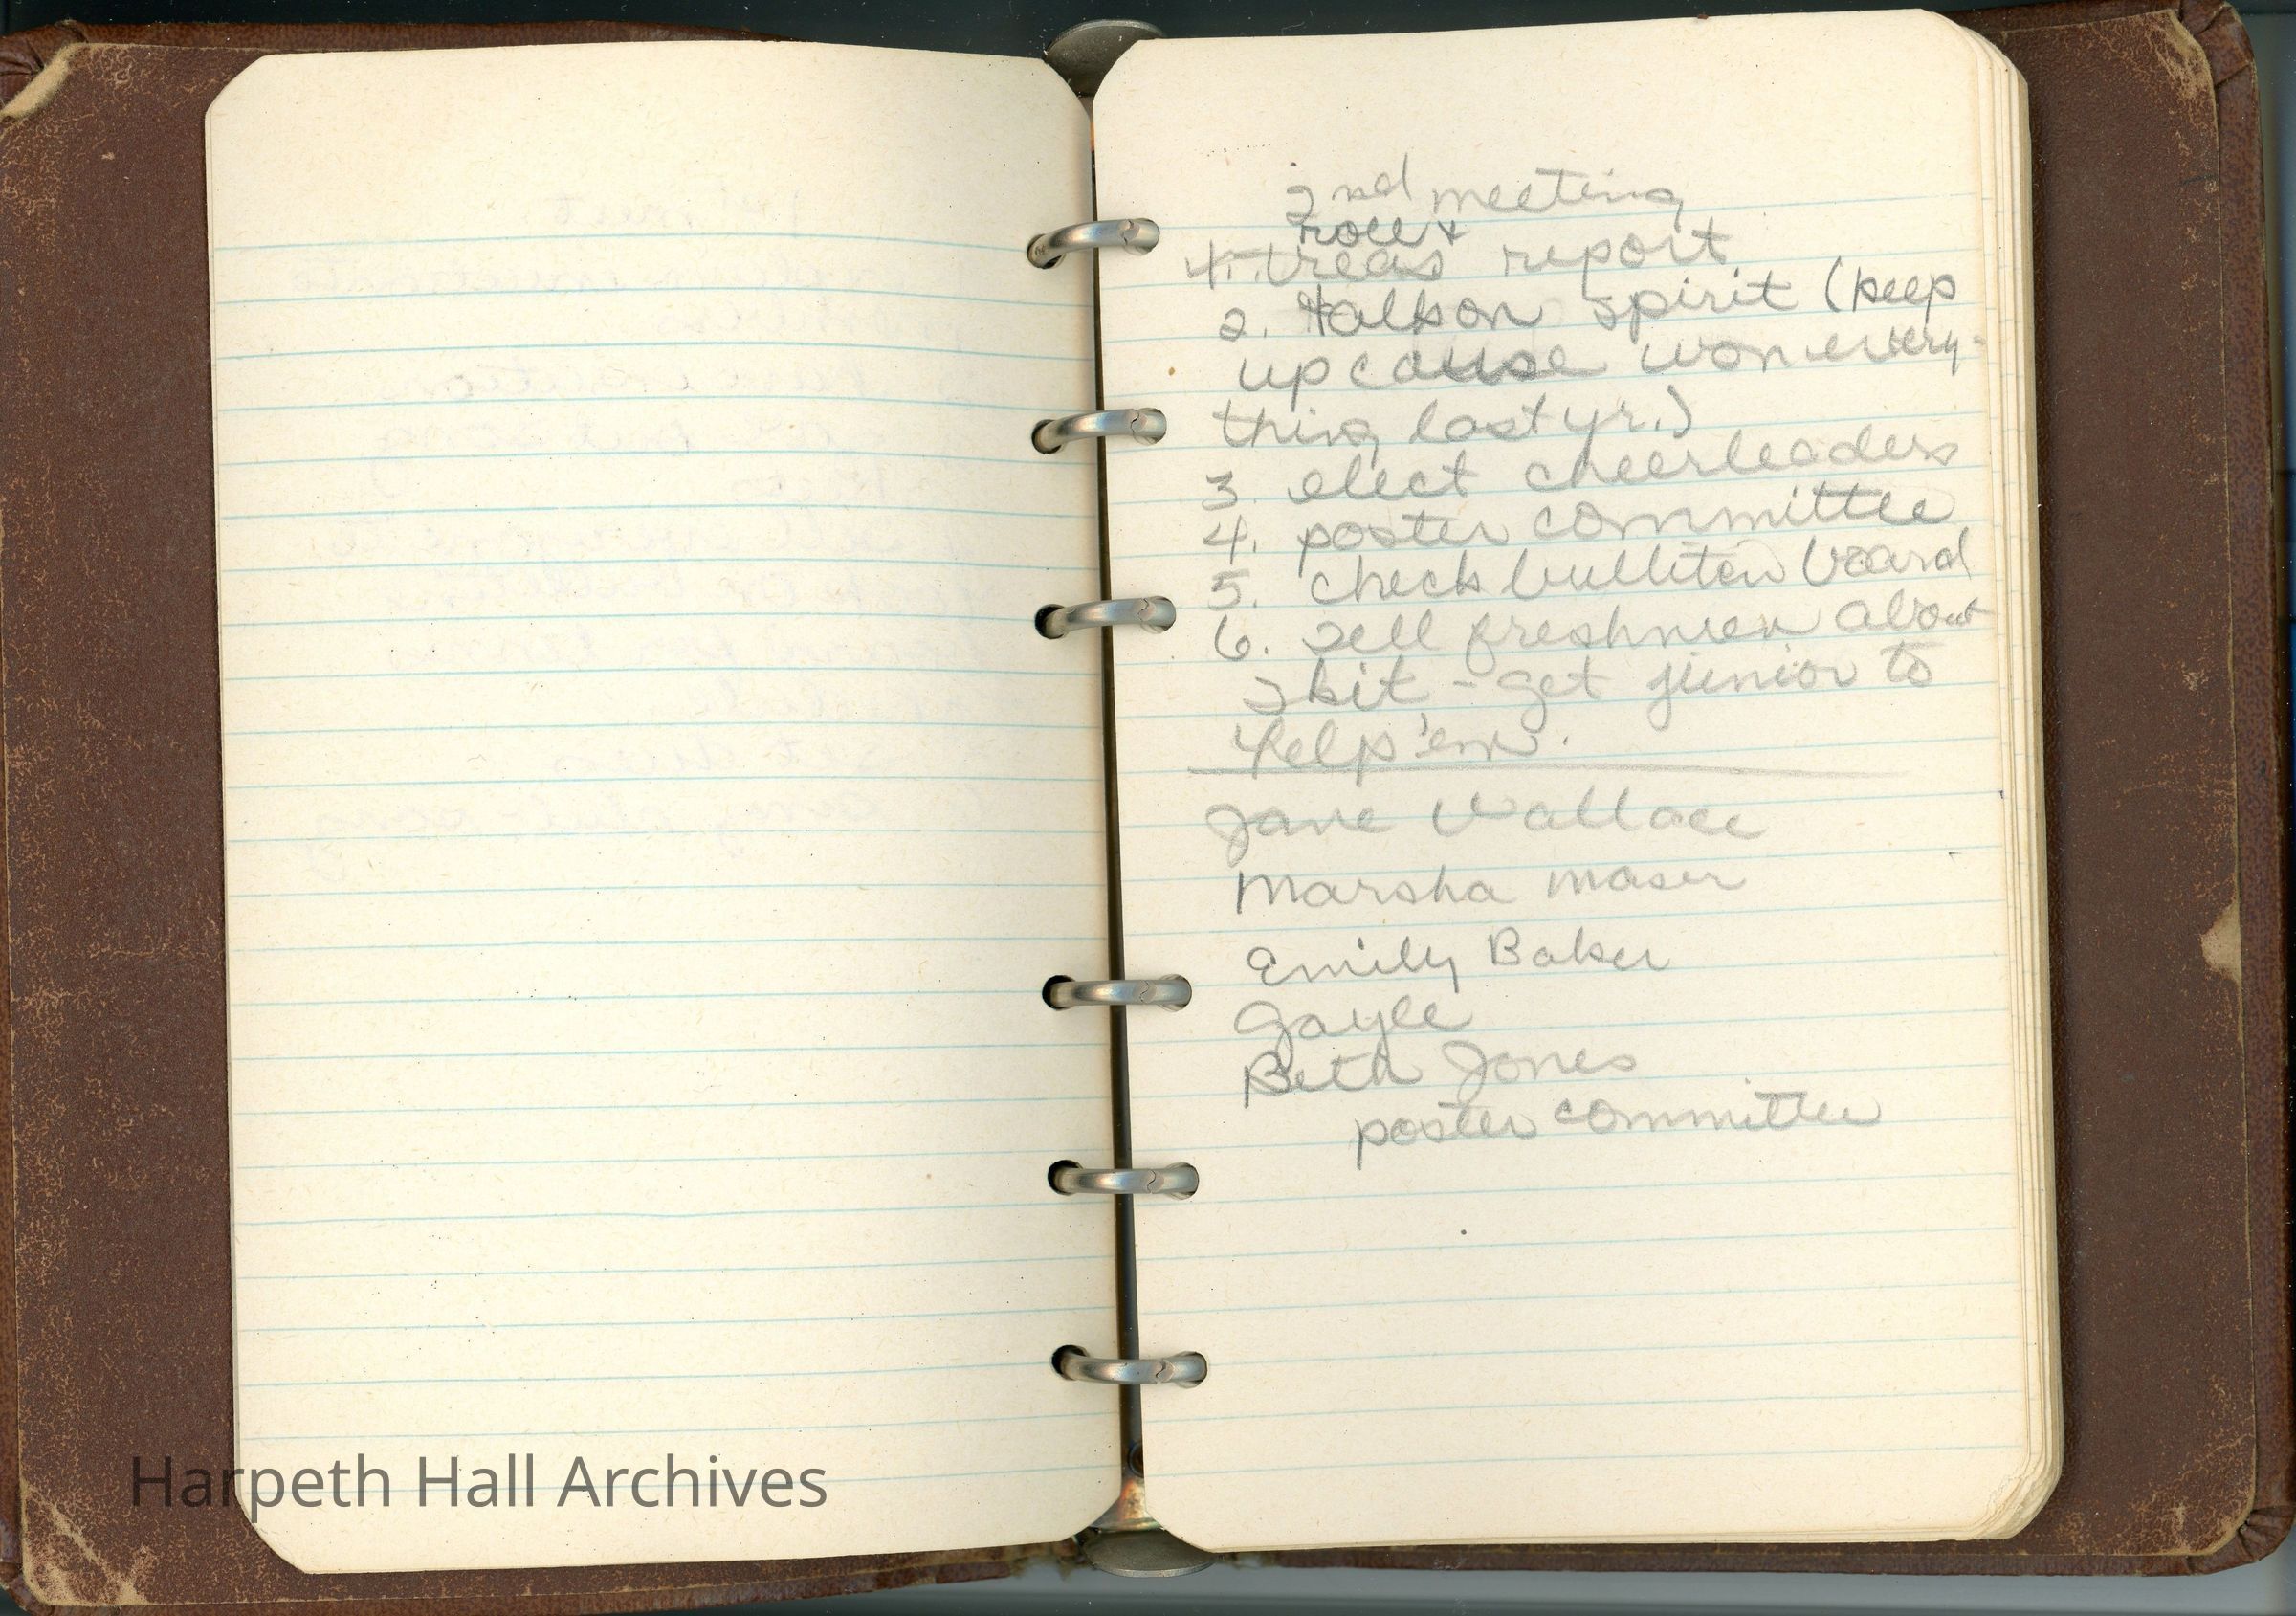 2nd meeting
roll +
1. treas report
2. talk on spirit (keep
up cause won every-
thing last yr.)
3. elect cheerleaders
4. poster committee
5. check bulliten board
6. tell freshmen about
skit - get junior to
help 'em.
Jane Wallace
Marsha Maser
Emily Baker
Gayle
Beth Jones
poster committee
Harpeth Hall Archives